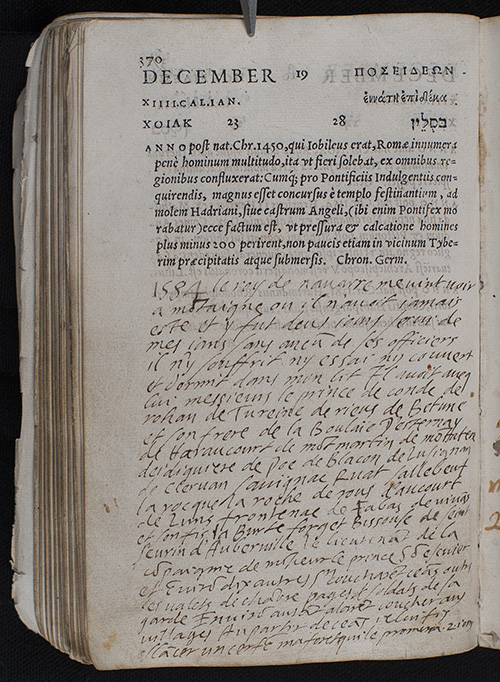 370
DECEMBER 19 ΠΟΣΕΙΔΕΩΝ
XIIII. CAL. IAN. ἐννάτη ἐπὶ δέκα.
XOIAK 23 28 בסליו
ANNO post nat. Chr. 1450, qui Iobileus erat, Romæ innumera
penè hominum multitudo, ita vt fieri solebat, ex omnibus re-
gionibus confluxerat: Cumq; pro Pontificiis Indulgentiis con-
quirendis, magnus esset concursus è templo festinantium, ad
molem Hadriani, siue castrum Angeli, (ibi enim Pontifex mo
rabatur) ecce factum est, vt pressura & calcatione homines
plus minus 200 perirent, non paucis etiam in vicinum Tybe-
rim præcipitatis atque submersis. Chron. Germ.
1584 le roy de navarre me vint voir
a motaigne ou il n'avoit jamais
este et y fut deus jours servi de
mes jans sans aucū de ses officiers
il n'y souffrit ny essai ny couvert
et dormit dans mon lit Il avoit aveq
lui messieurs le prince de conde de
rohan de Tureine de rieus de Betune
et son frere de la Boulaie Desternay
de Haraucourt de motmartin de
desdiguiere de Poe de Blacon de Lusignan
de Clervan Savignac Ruat Sallebeuf
la rocque la roche de rous
de Luns frontenac de Fabas de vivas
et son fis la Burte forget Bissouse de
seurin d'Auberville le lieutenāt de la
cōpaignie de mōsieur le prince
et environ dix autres coucharēt ceās outre
les valets de chābre pages & soldats de sa
garde Environ autāt alarēt coucher aus
villages Au partir de ceās je lui fis
eslācer un cerf ē ma forest qui le promena 2 jours